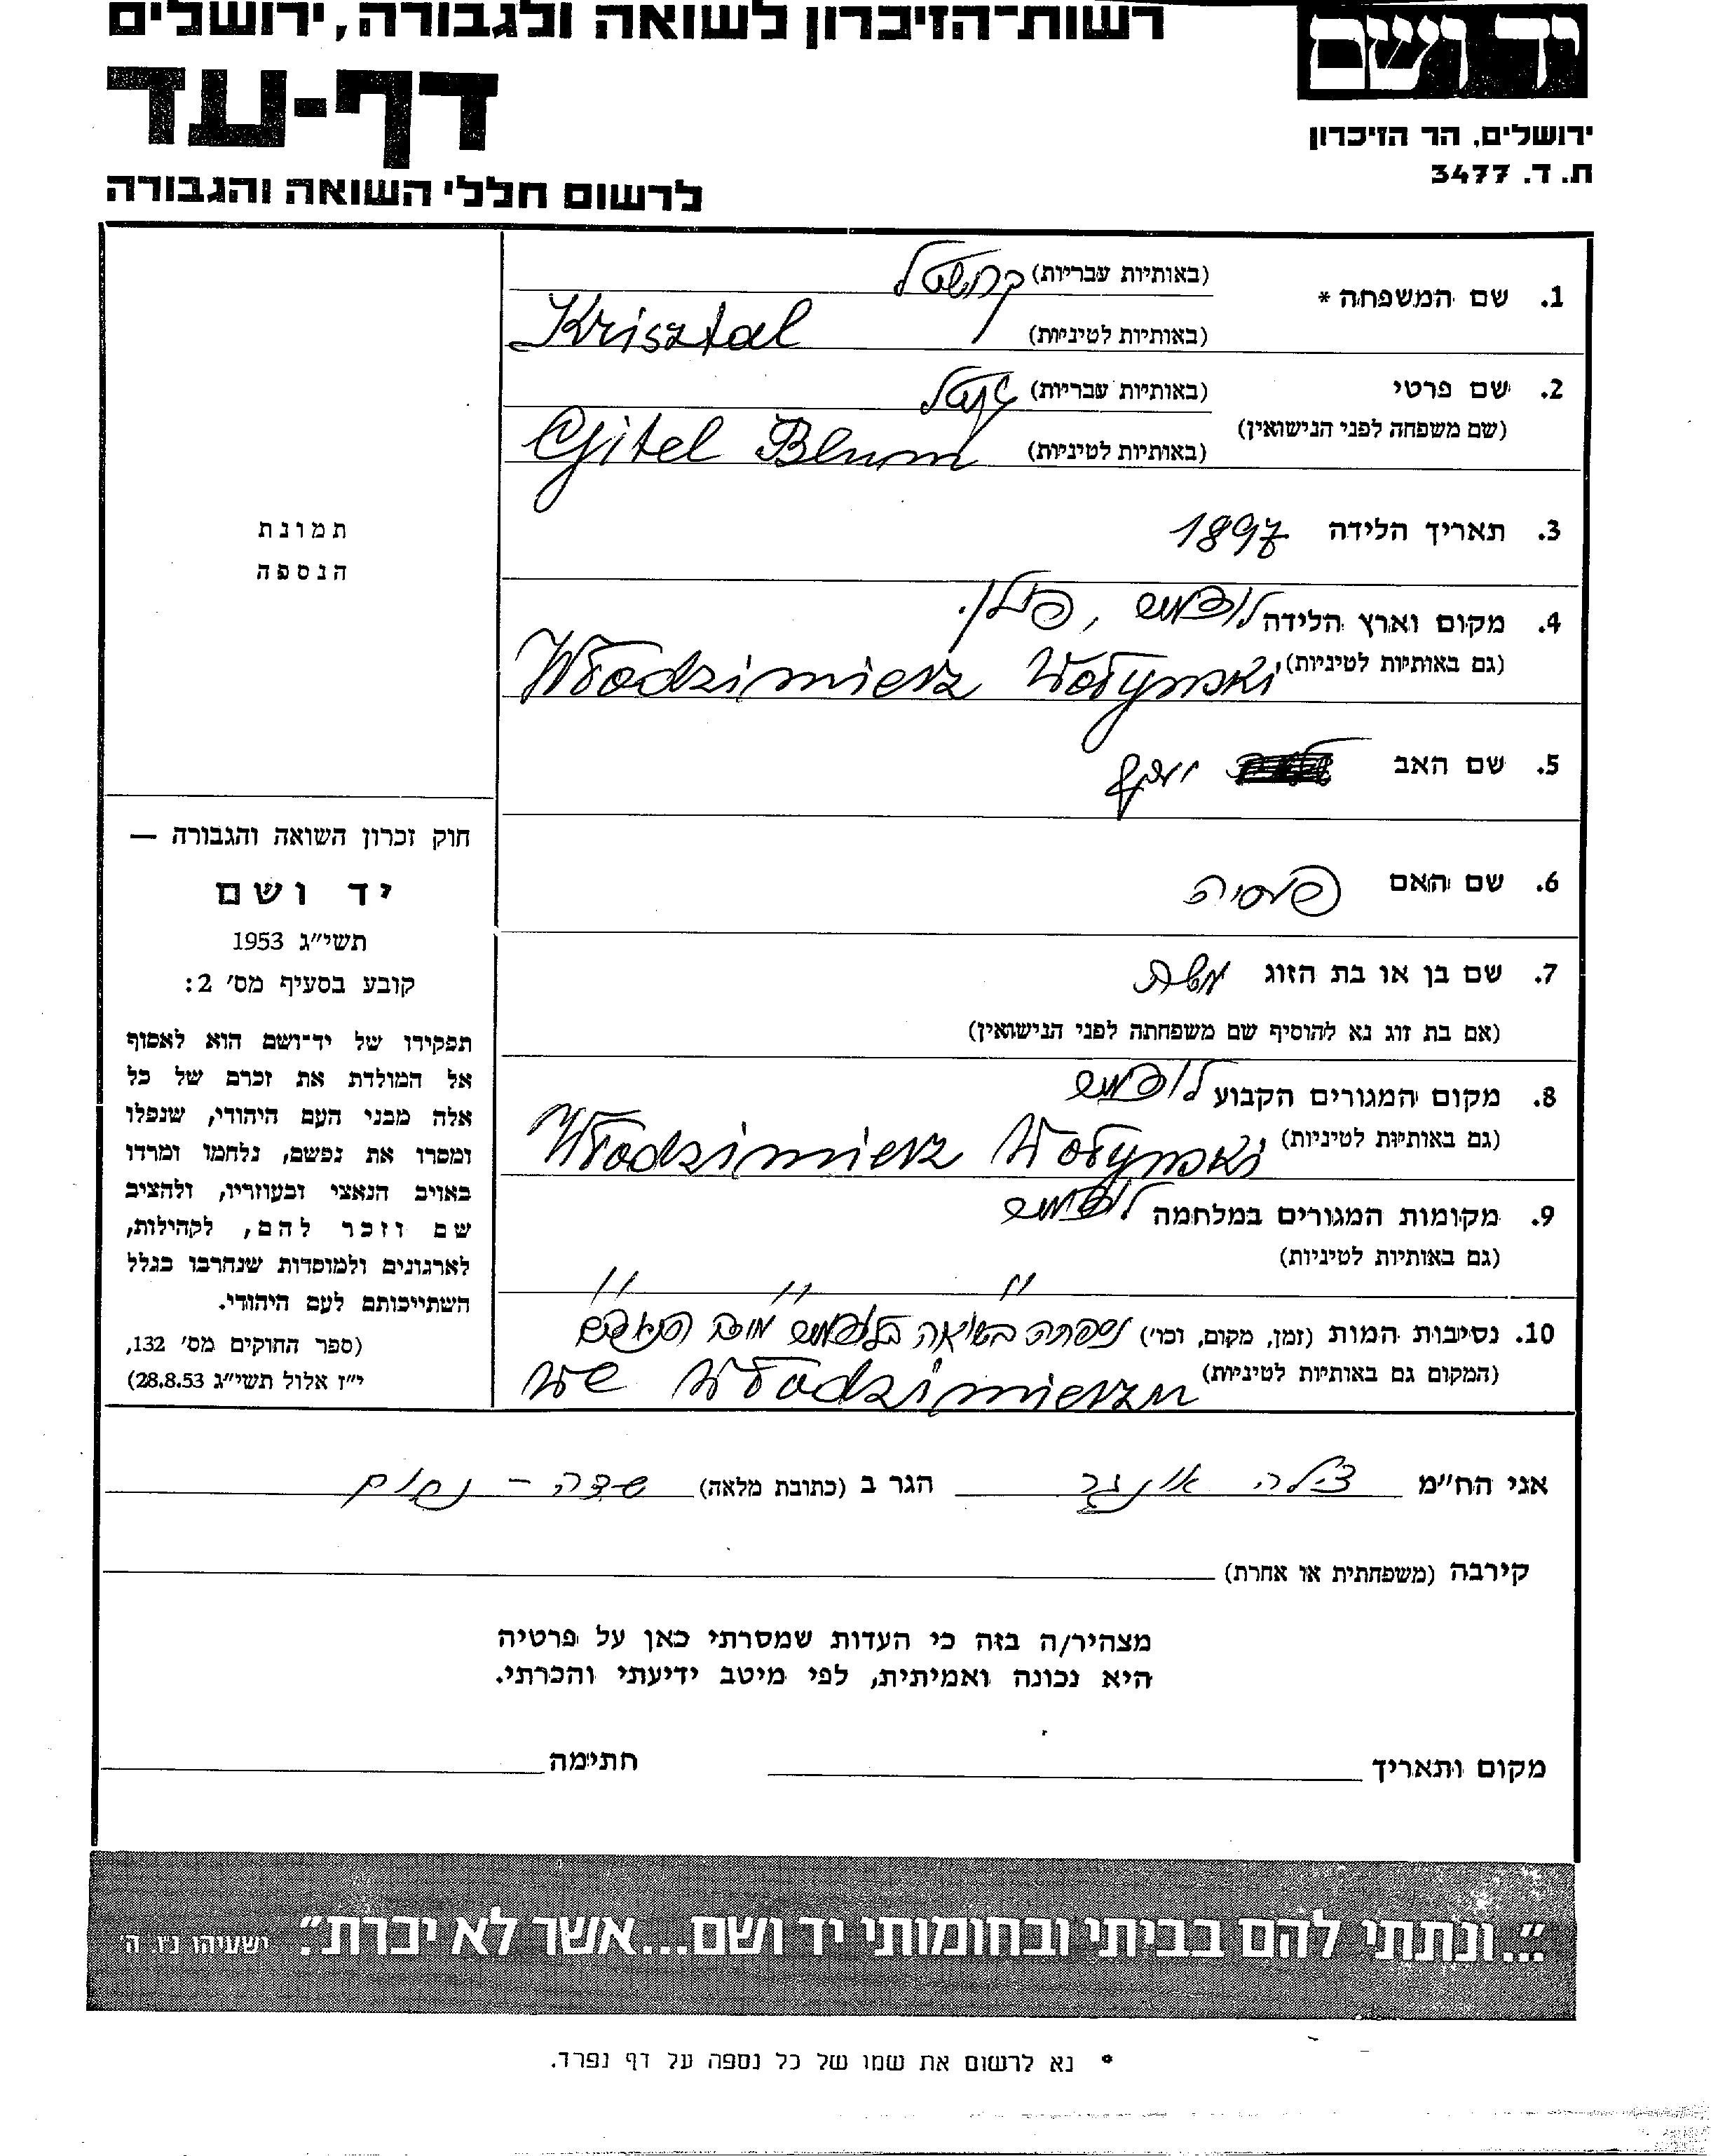 רשות-הזיכרון לשואה ולגבורה, ירושלים
דף-עד
לרשום חללי השואה והגבורה
יד ושם
ירושלים, הר הזיכרון
ת. ד. 3477
1. שם המשפחה * (באותיות עבריות) קרישטל
(באותיות לטיניות) Krisztal
2. שם פרטי (באותיות עבריות) גיטל
(שם משפחה לפני הנישואין) (באותיות לטיניות) Gitel Blum
3. תאריך הלידה 1897
4. מקום וארץ הלידה לודמיש, פולין.
(גם באותיות לטיניות) Włodzimierz Wołynski
5. שם האב יוסף
6. שם האם פסיה
7. שם בן או בת הזוג משה
(אם בת זוג נא להוסיף שם משפחתה לפני הנישואין)
8. מקום המגורים הקבוע לודמיש
(גם באותיות לטיניות) Włodzimierz Wołynski
9. מקומות המגורים במלחמה לודמיש
(גם באותיות לטיניות)
" " "
10. נסיבות המות (זמן, מקום, וכו') נספתה בשואה בלודמיש
(המקום גם באותיות לטיניות) we Włodzimierzu
תמונת
הנספה
חוק זכרון השואה והגבורה —
יד ושם
תשי"ג 1953
קובע בסעיף מס' 2:
תפקידו של יד-ושם הוא לאסוף
אל המולדת את זכרם של כל
אלה מבני העם היהודי, שנפלו
ומסרו את נפשם, נלחמו ומרדו
באויב הנאצי ובעוזריו, ולהציב
שם וזכר להם, לקהילות,
לארגונים ולמוסדות שנחרבו בגלל
השתייכותם לעם היהודי.
(ספר החוקים מס' 132,
י"ז אלול תשי"ג 28.8.53)
אני הח"מ צילה אונגר הגר ב (כתובת מלאה) שדה - נחום
קירבה (משפחתית או אחרת)
מצהיר/ה בזה כי העדות שמסרתי כאן על פרטיה
היא נכונה ואמיתית, לפי מיטב ידיעתי והכרתי.
מקום ותאריך חתימה
"...ונתתי להם בביתי ובחומותי יד ושם...אשר לא יכרת". ישעיהו נו, ה'
* נא לרשום את שמו של כל נספה על דף נפרד.